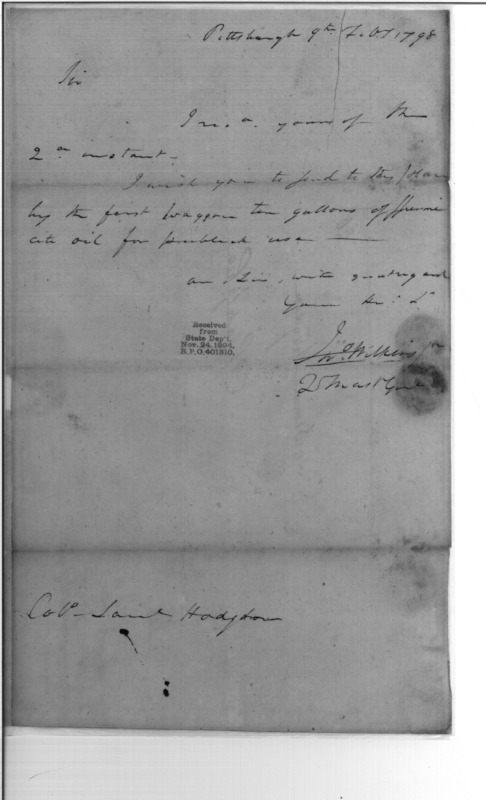 Pittsburgh 9th Feb 1798
Sir
I rec'd. yours of the
2d instant —
I wish you to send to this place
by the first waggon ten gallons of
oil for publick use —
am Sir, with great regard
Your
Jno Wilkins Jr
Q Mast Genl
Received
from
State Dep't.
Nov. 24, 1894,
R.P.O. 401310.
Colo Saml Hodgdon